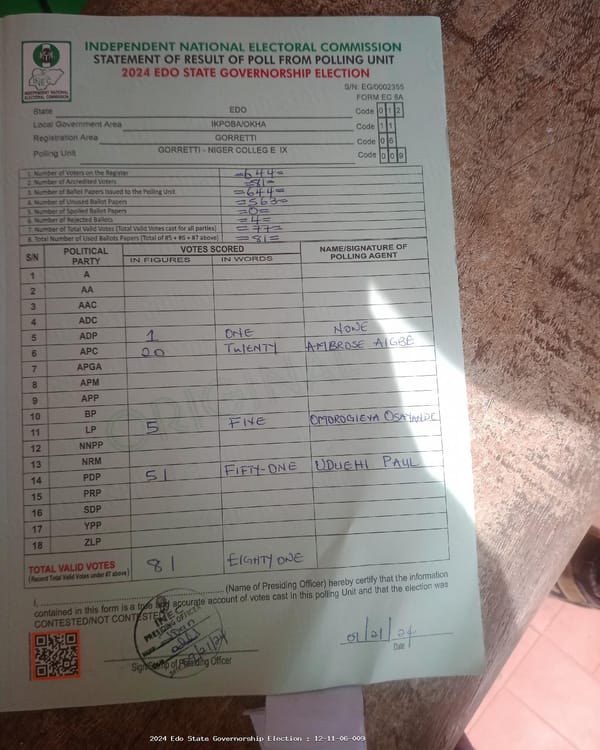 INDEPENDENT NATIONAL ELECTORAL COMMISSION
STATEMENT OF RESULT OF POLL FROM POLLING UNIT
2024 EDO STATE GOVERNORSHIP ELECTION
INDEPENDENT NATIONAL ELECTORAL COMMISSION
S/N: EG/0002355
FORM EC 8A
State EDO Code 0 1 2
Local Government Area IKPOBA/OKHA Code 1 1
Registration Area GORRETTI Code 0 6
Polling Unit GORRETTI - NIGER COLLEG E IX Code 0 0 9
1. Number of Voters on the Register =644=
2. Number of Accredited Voters =81=
3. Number of Ballot Papers Issued to the Polling Unit =644=
4. Number of Unused Ballot Papers =563=
5. Number of Spoiled Ballot Papers =0=
6. Number of Rejected Ballots =4=
7. Number of Total Valid Votes (Total Valid Votes cast for all parties) =77=
8. Total Number of Used Ballots Papers (Total of #5 + #6 + #7 above) =81=
S/N POLITICAL PARTY VOTES SCORED NAME/SIGNATURE OF POLLING AGENT
IN FIGURES IN WORDS
1 A
2 AA
3 AAC
4 ADC
5 ADP 1 ONE NONE
6 APC 20 TWENTY AMBROSE AIGBE
7 APGA
8 APM
9 APP
10 BP
11 LP 5 FIVE OMOROGIEVA OSAYANDE
12 NNPP
13 NRM
14 PDP 51 FIFTY-ONE UDUEHI PAUL
15 PRP
16 SDP
17 YPP
18 ZLP
TOTAL VALID VOTES 81 EIGHTY ONE
(Record Total Valid Votes under #7 above)
I, (Name of Presiding Officer) hereby certify that the information
contained in this form is a true and accurate account of votes cast in this polling Unit and that the election was
CONTESTED/NOT CONTESTED
INEC
PRESIDING OFFICER
09/21/24
Sign/Stamp of Presiding Officer
09/21/24
Date
2024 Edo State Governorship Election : 12-11-06-009